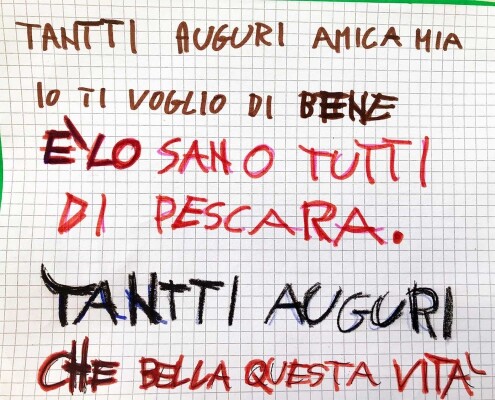 TANTTI AUGURI AMICA MIA
IO TI VOGLIO DI BENE
E'LO SANO TUTTI
DI PESCARA.
TANTTI AUGURI
CHE BELLA QUESTA VITA'